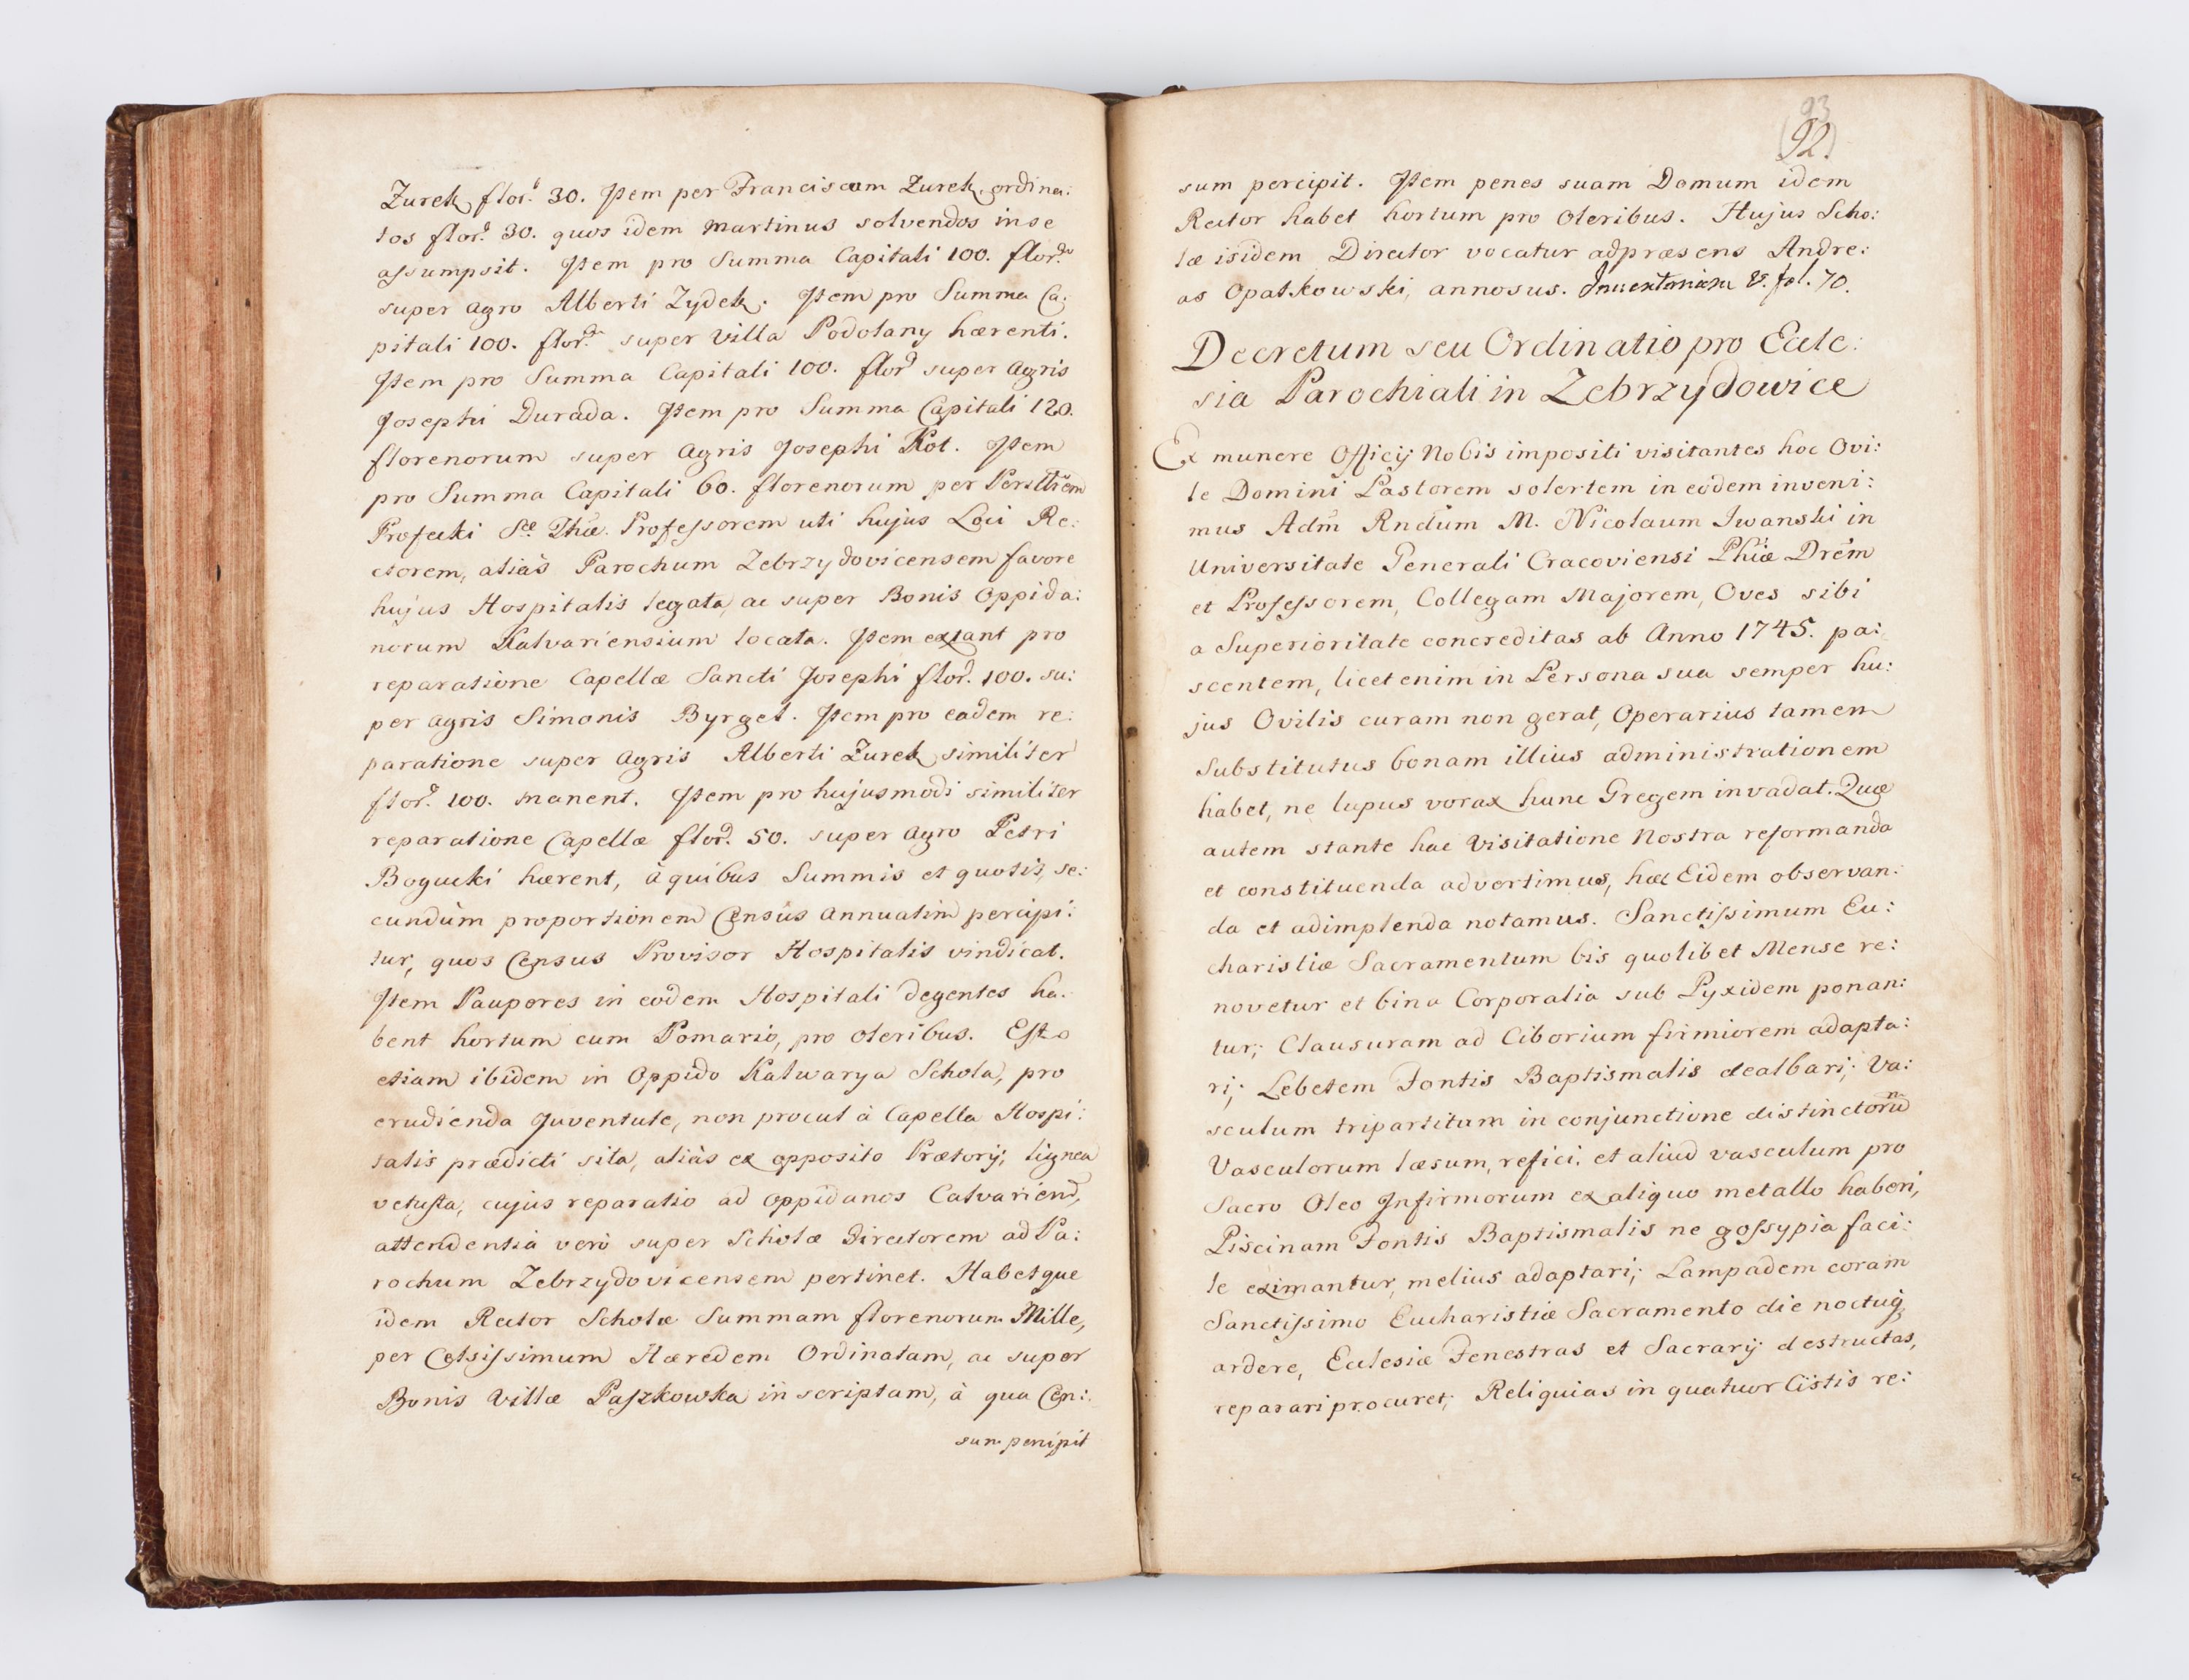 Zurek flor. 30. Item per Franciscum Zurek ordina:
tos flor. 30. quos idem Martinus solvendos in se
assumpsit. Item pro Summa Capitali 100. flor.
super agro Alberti Zydek. Item pro Summa Ca:
pitali 100. flor. super Villa Podolany hærenti.
Item pro Summa Capitali 100. flor. super Agris
Josephi Durada. Item pro Summa Capitali 120.
florenorum super Agris Josephi Kot. Item
pro Summa Capitali 60. florenorum per
Profecki Professorem uti hujus Loci Re:
ctorem, aliàs Parochum Zebrzydovicensem favore
hujus Hospitalis legata, ac super Bonis Oppida:
norum Kalvariensium locata. Item extant pro
reparatione Capellæ Sancti Josephi flor. 100. su:
per agris Simonis Byrget. Item pro eadem re:
paratione super Agris Alberti Zurek similiter
flor. 100. manent. Item pro hujusmodi similiter
reparatione Capellæ flor. 50. super Agro Petri
Bogucki hærent, à quibus Summis et quotis, se:
cundùm proportionem Census Annuatim percipi:
tur, quos Census Provisor Hospitalis vindicat.
Item Pauperes in eodem Hospitali degentes ha:
bent hortum cum Pomario, pro oleribus. Est
etiam ibidem in Oppido Kalwarya Schola, pro
erudienda Juventute, non procul à Capella Hospi:
talis prædicti sita, aliàs ex opposito Prætorij, lignea
vetusta, cujus reparatio ad oppidanos Calvarien,
attendentia verò super Scholæ Directorem ad Pa:
rochum Zebrzydovicensem pertinet. Habetque
idem Rector Scholæ Summam florenorum Mille,
per Celsissimum Hæredem Ordinatam, ac super
Bonis Villæ Paszkowka inscriptam, à qua Cen:
sum percipit
93
(92.)
sum percipit. Item penes suam Domum idem
Rector habet hortum pro Oleribus. Hujus Scho:
læ isidem Director vocatur adpræsens Andre:
as Opatkowski, annosus. Inventarium V. fol. 70.
Decretum seu Ordinatio pro Eccle:
sia Parochiali in Zebrzydowice
Ex munere Officij Nobis impositi visitantes hoc Ovi:
le Domini Pastorem solertem in eodem inveni:
mus Adm̃ Rndũm M. Nicolaum Iwanski in
Universitate Generali Cracoviensi Phiæ Drem
et Professorem, Collegam Majorem, Oves sibi
a Superioritate concreditas ab Anno 1745. pa:
scentem, licet enim in Persona sua semper hu:
jus Ovilis curam non gerat, Operarius tamen
Substitutus bonam illius administrationem
habet, ne lupus vorax hunc Gregem invadat. Quæ
autem stante hac Visitatione Nostra reformanda
et constituenda advertimus, hæc Eidem observan:
da et adimplenda notamus. Sanctissimum Eu:
charistiæ Sacramentum bis quolibet Mense re:
novetur et bina Corporalia sub Pyxidem ponan:
tur; Clausuram ad Ciborium firmiorem adapta:
ri; Lebetem Fontis Baptismalis dealbari; Va:
sculum tripartitum in conjunctione distinctorũ
Vasculorum læsum, refici, et aliud vasculum pro
Sacro Oleo Infirmorum ex aliquo metallo haberi,
Piscinam Fontis Baptismalis ne gossypia faci:
le eximantur, melius adaptari; Lampadem coram
Sanctissimo Eucharistiæ Sacramento die noctuq
ardere, Ecclesiæ Fenestras et Sacrarij destructas,
reparari procuret; Reliquias in quatuor Cistis re: